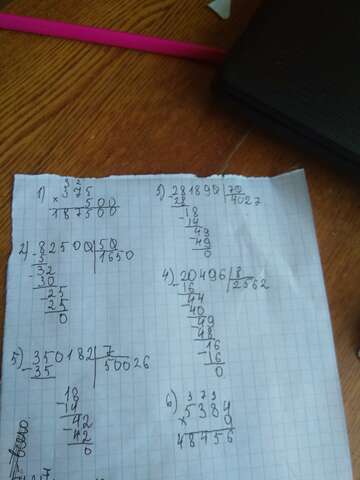 1) 3 2
375
× 500
187500
2) 82500 | 50
- 5 | 1650
- 32
30
- 25
25
0
5) 350182 | 7
- 35 | 50026
18
- 14
- 42
42
0
3) 281890 | 70
- 28 | 4027
- 18
14
- 49
49
0
4) 20496 | 8
- 16 | 2562
- 44
40
- 49
48
- 16
16
0
6) 3 7 3
5384
× 9
48456